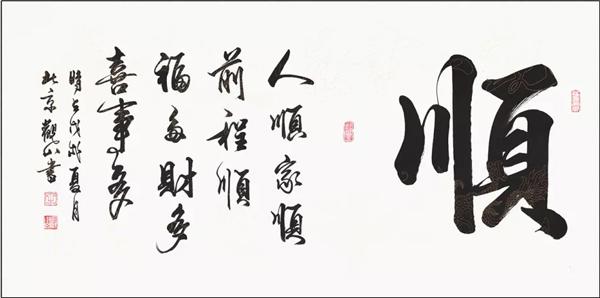 順
人順家順
前程順
福多財多
喜事多
時在戊戌夏月
北京觀山書